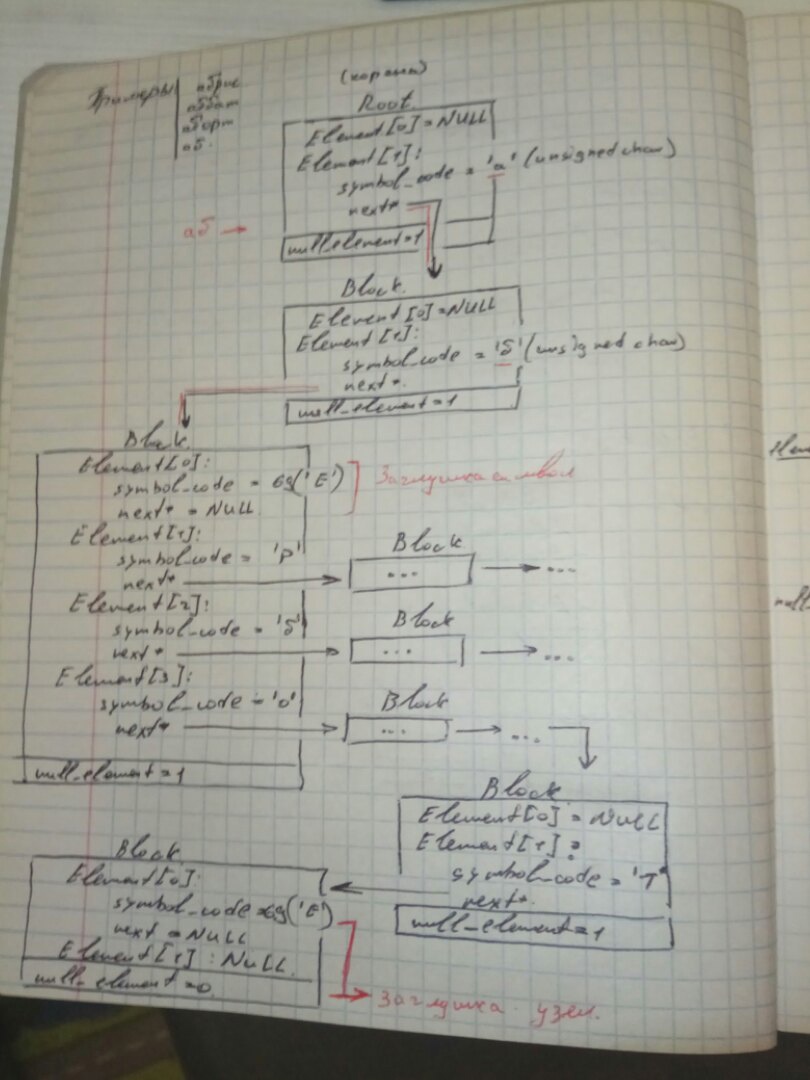 Примеры
абрис
аббат
аборт
аб.
(корень)
Root
Element[0] = NULL
Element[1]:
symbol_code = 'а' (unsigned char)
next*
аб →
null_element = 1
Block
Element[0] = NULL
Element[1]:
symbol_code = 'б' (unsigned char)
next*
null_element = 1
Block
Element[0]:
symbol_code = 69('E')
Заглушка символ
next* = NULL
Element[1]:
symbol_code = 'р'
Block
next*
...
...
Element[2]:
symbol_code = 'б'
Block
next*
...
...
Element[3]:
symbol_code = 'о'
Block
next*
...
...
null_element = 1
Block
Element[0] = NULL
Element[1]:
symbol_code = 'т'
next*
null_element = 1
Block
Element[0]:
symbol_code = 69('E')
next = NULL
Element[1]: NULL
null_element = 0
Заглушка узел.